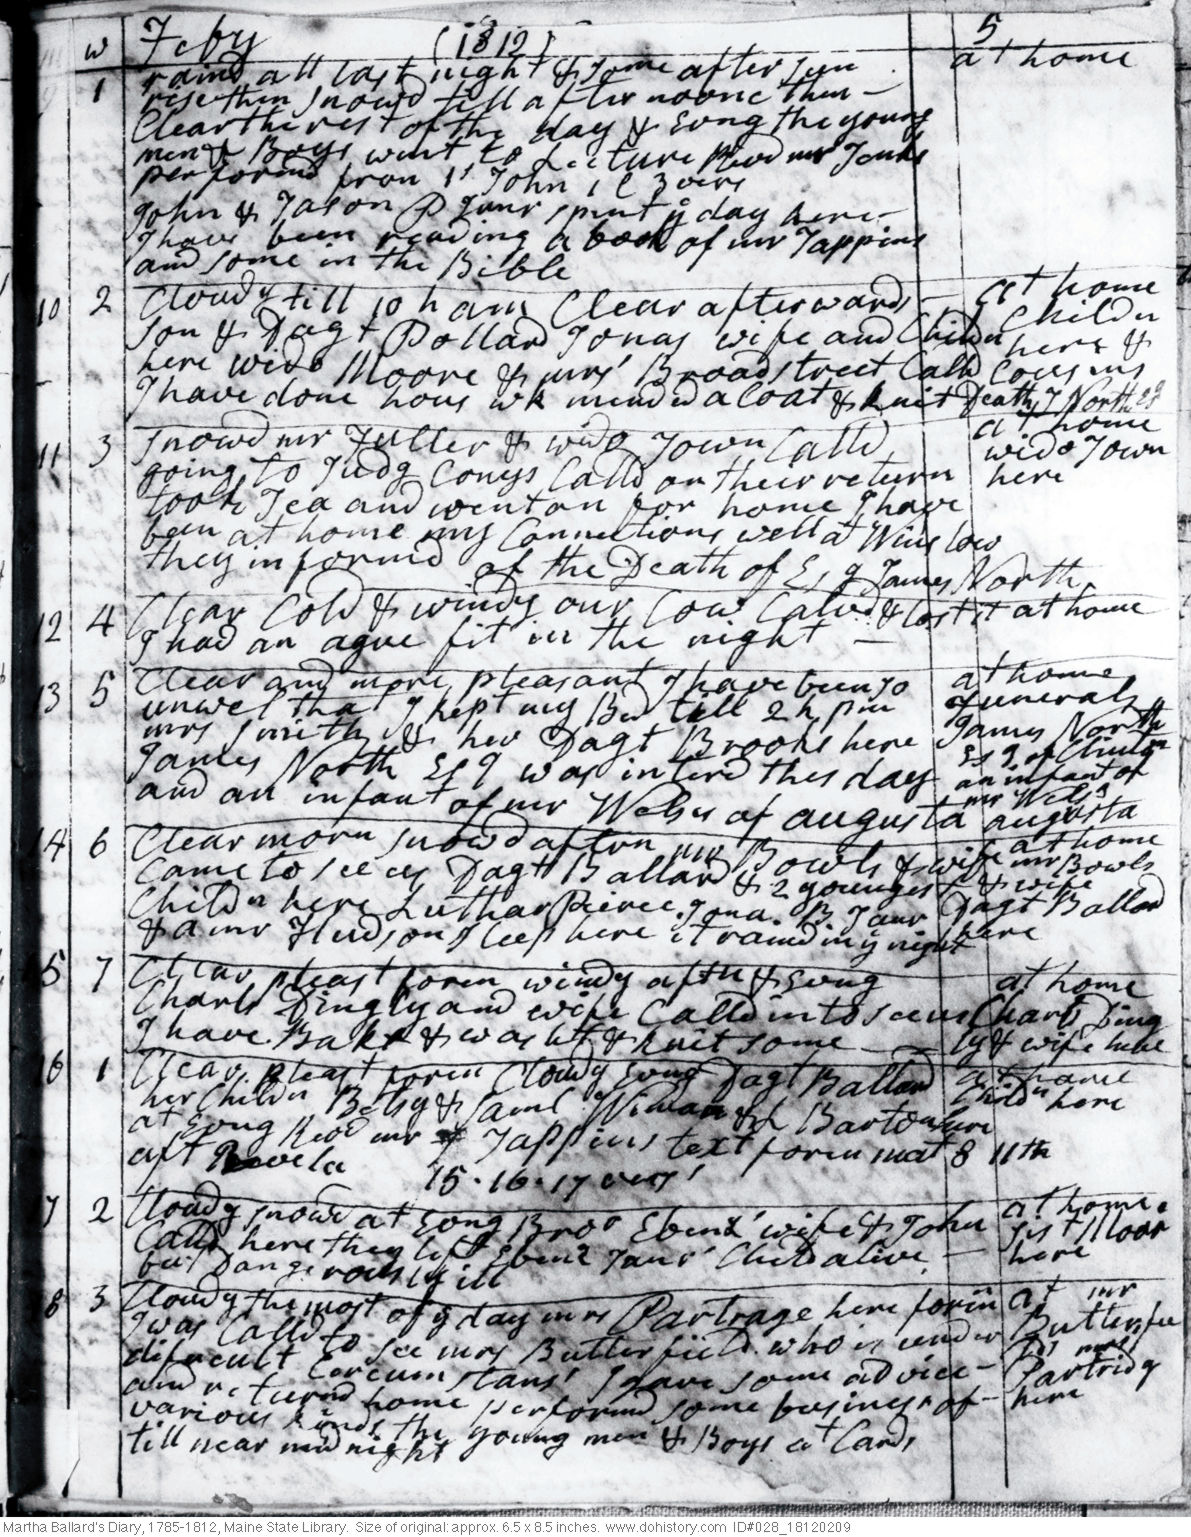 w Feby (1812) 5
1 raind all last night & some after sun at home
rise then snowd till afternoone then —
Clear the rest of the day & Evng the young
men & Boys went to Lecture Revd mr Jenks
performd from 1st John 1 C 3 vers
John & Jason P Jnr spent ye day here —
I have been reading a book of mr Tappins
and some in the Bible
10 2 Cloudy till 10 h am Clear afterwards — at home
son & Dagt Pollard Jonas wife and Childn Childn
here wido Moore & mrs Broadstreet Calld here &
I have done hous wk mended a Coat & knit Death J North Esq
11 3 snowd mr Fuller & wido Town Calld at home
going to Judg Conys Calld on their return wido Town
took Tea and went on for home I have here
been at home my Connections well at Winslow
they informd of the Death of Esq James North
12 4 Clear Cold & windy our Cow Calvd & lost it at home
I had an ague fit in the night —
13 5 Clear and more pleasant I have been so at home
unwel that I kept my Bed till 2 h pm funerals
mrs smith & her Dagt Brooks here James North
James North Esq was interd this day Esq of Clinton
and an infant of mr Wels of augusta an infant of
mr Wels augusta
14 6 Clear morn snowd aftern mr Bowls & wife at home
Came to see us Dagt Ballard & 2 youngest mr Bowls & wife
Childn here Luther Pierce Jona B Jnr Dagt Ballard
& a mr Hudson sleep here it raind in ye night here
15 7 Clear pleast foren windy aftn & Evng at home
Charls Dingly and wife Calld in to see us Charls Ding
I have Bakt & washt & knit some — ly & wife here
16 1 Clear pleast foren Cloudy Evng Dagt Ballard at home
her Childn Betsy & Saml Wiman & L Barton here Childn here
at Evng Revd mr Tappins text foren mat 8 11th
aft Revela 15 . 16 . 17 vers
17 2 Cloudy snowd at Evng Bror Ebenz wife & John at home
Calld here they left Ebenz Jnrs Child alive — sist Moor
but Dangerously ill here
18 3 Cloudy the most of ye day mrs Partrage here foren at mr
I was Calld to see mrs Butterfield who is under Butterfie
dificult Cercumstans I gave some advice — lds mrs
and returnd home performd some business of — Partridg
various kinds the young men & Boys at Cards here
till near midnight
Martha Ballard's Diary, 1785-1812, Maine State Library. Size of original: approx. 6.5 x 8.5 inches. www.dohistory.com ID#028_18120209